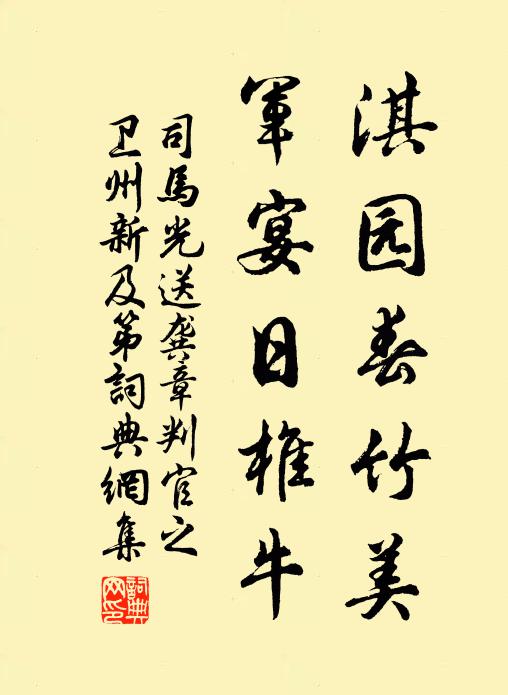 淇园春竹美
军宴日椎牛
司馬光送龚章判官之
卫州新及第詞典網集
詞典網印